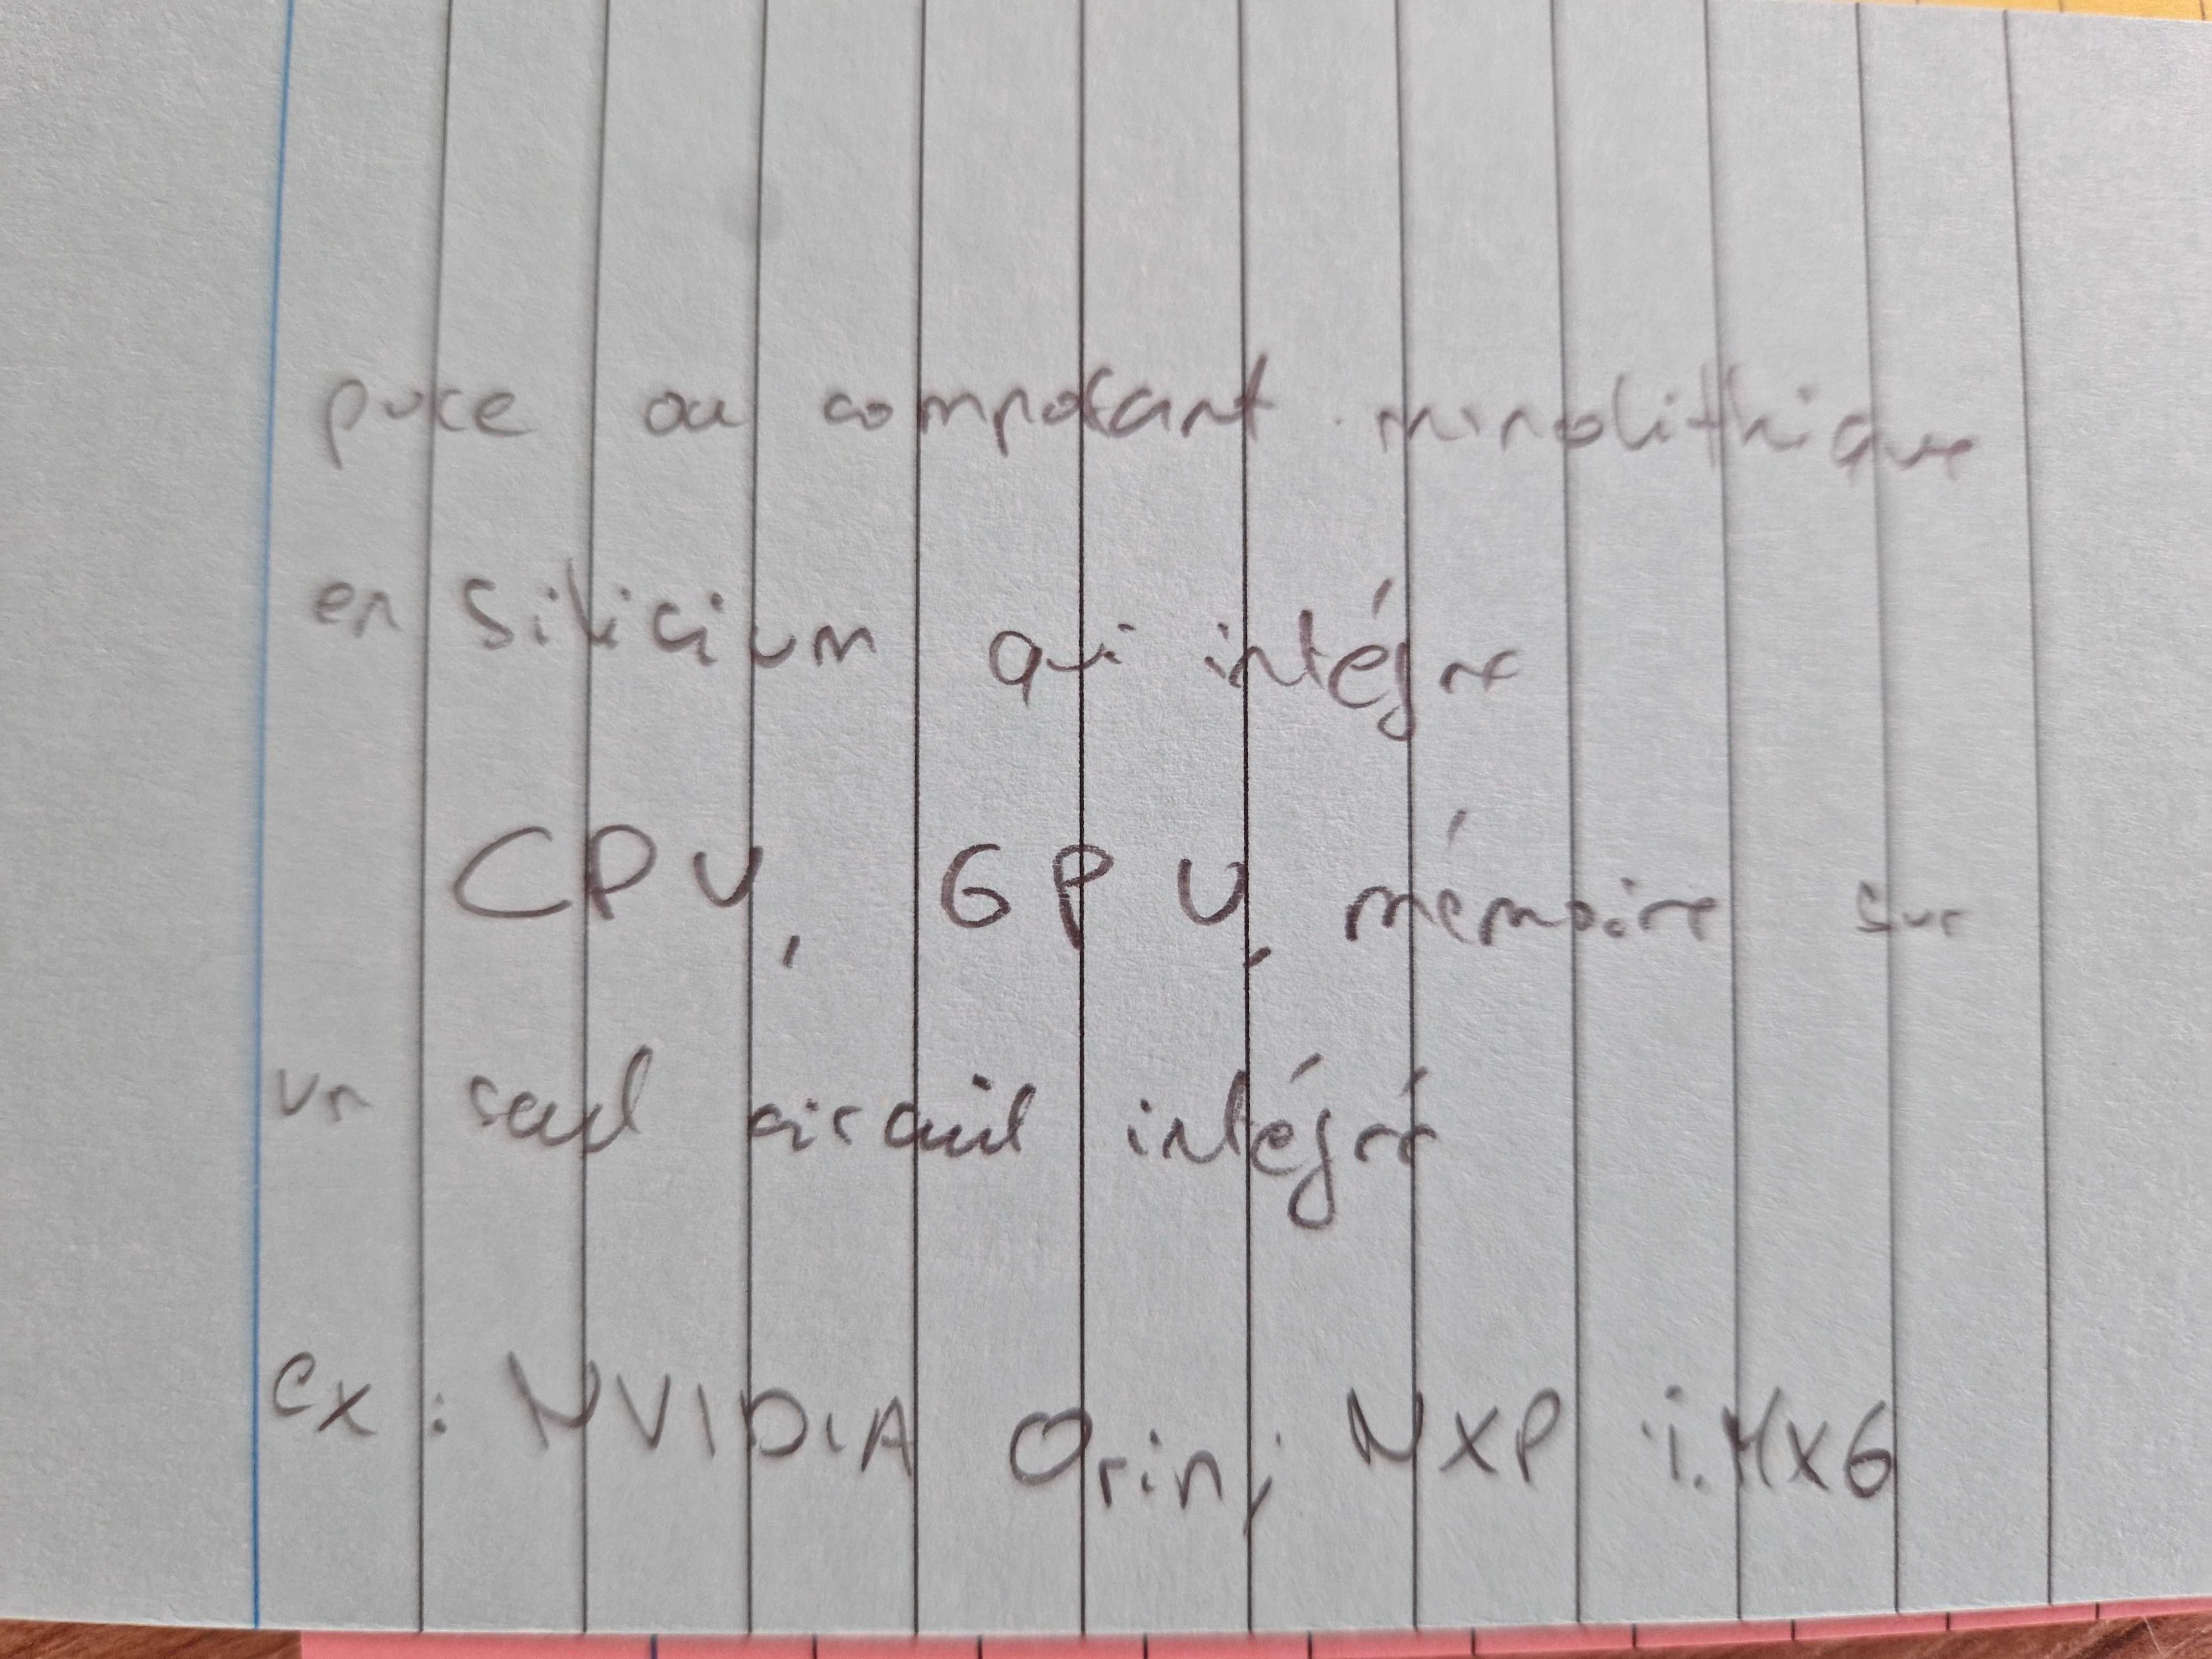 puce ou composant monolithique
en silicium qui intégre
CPU, GPU, mémoire sur
un seul circuit intégré
ex : NVIDIA Orin, NXP i.MX6